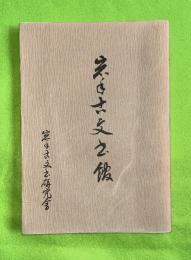 岩手古文書館
岩手古文書研究会